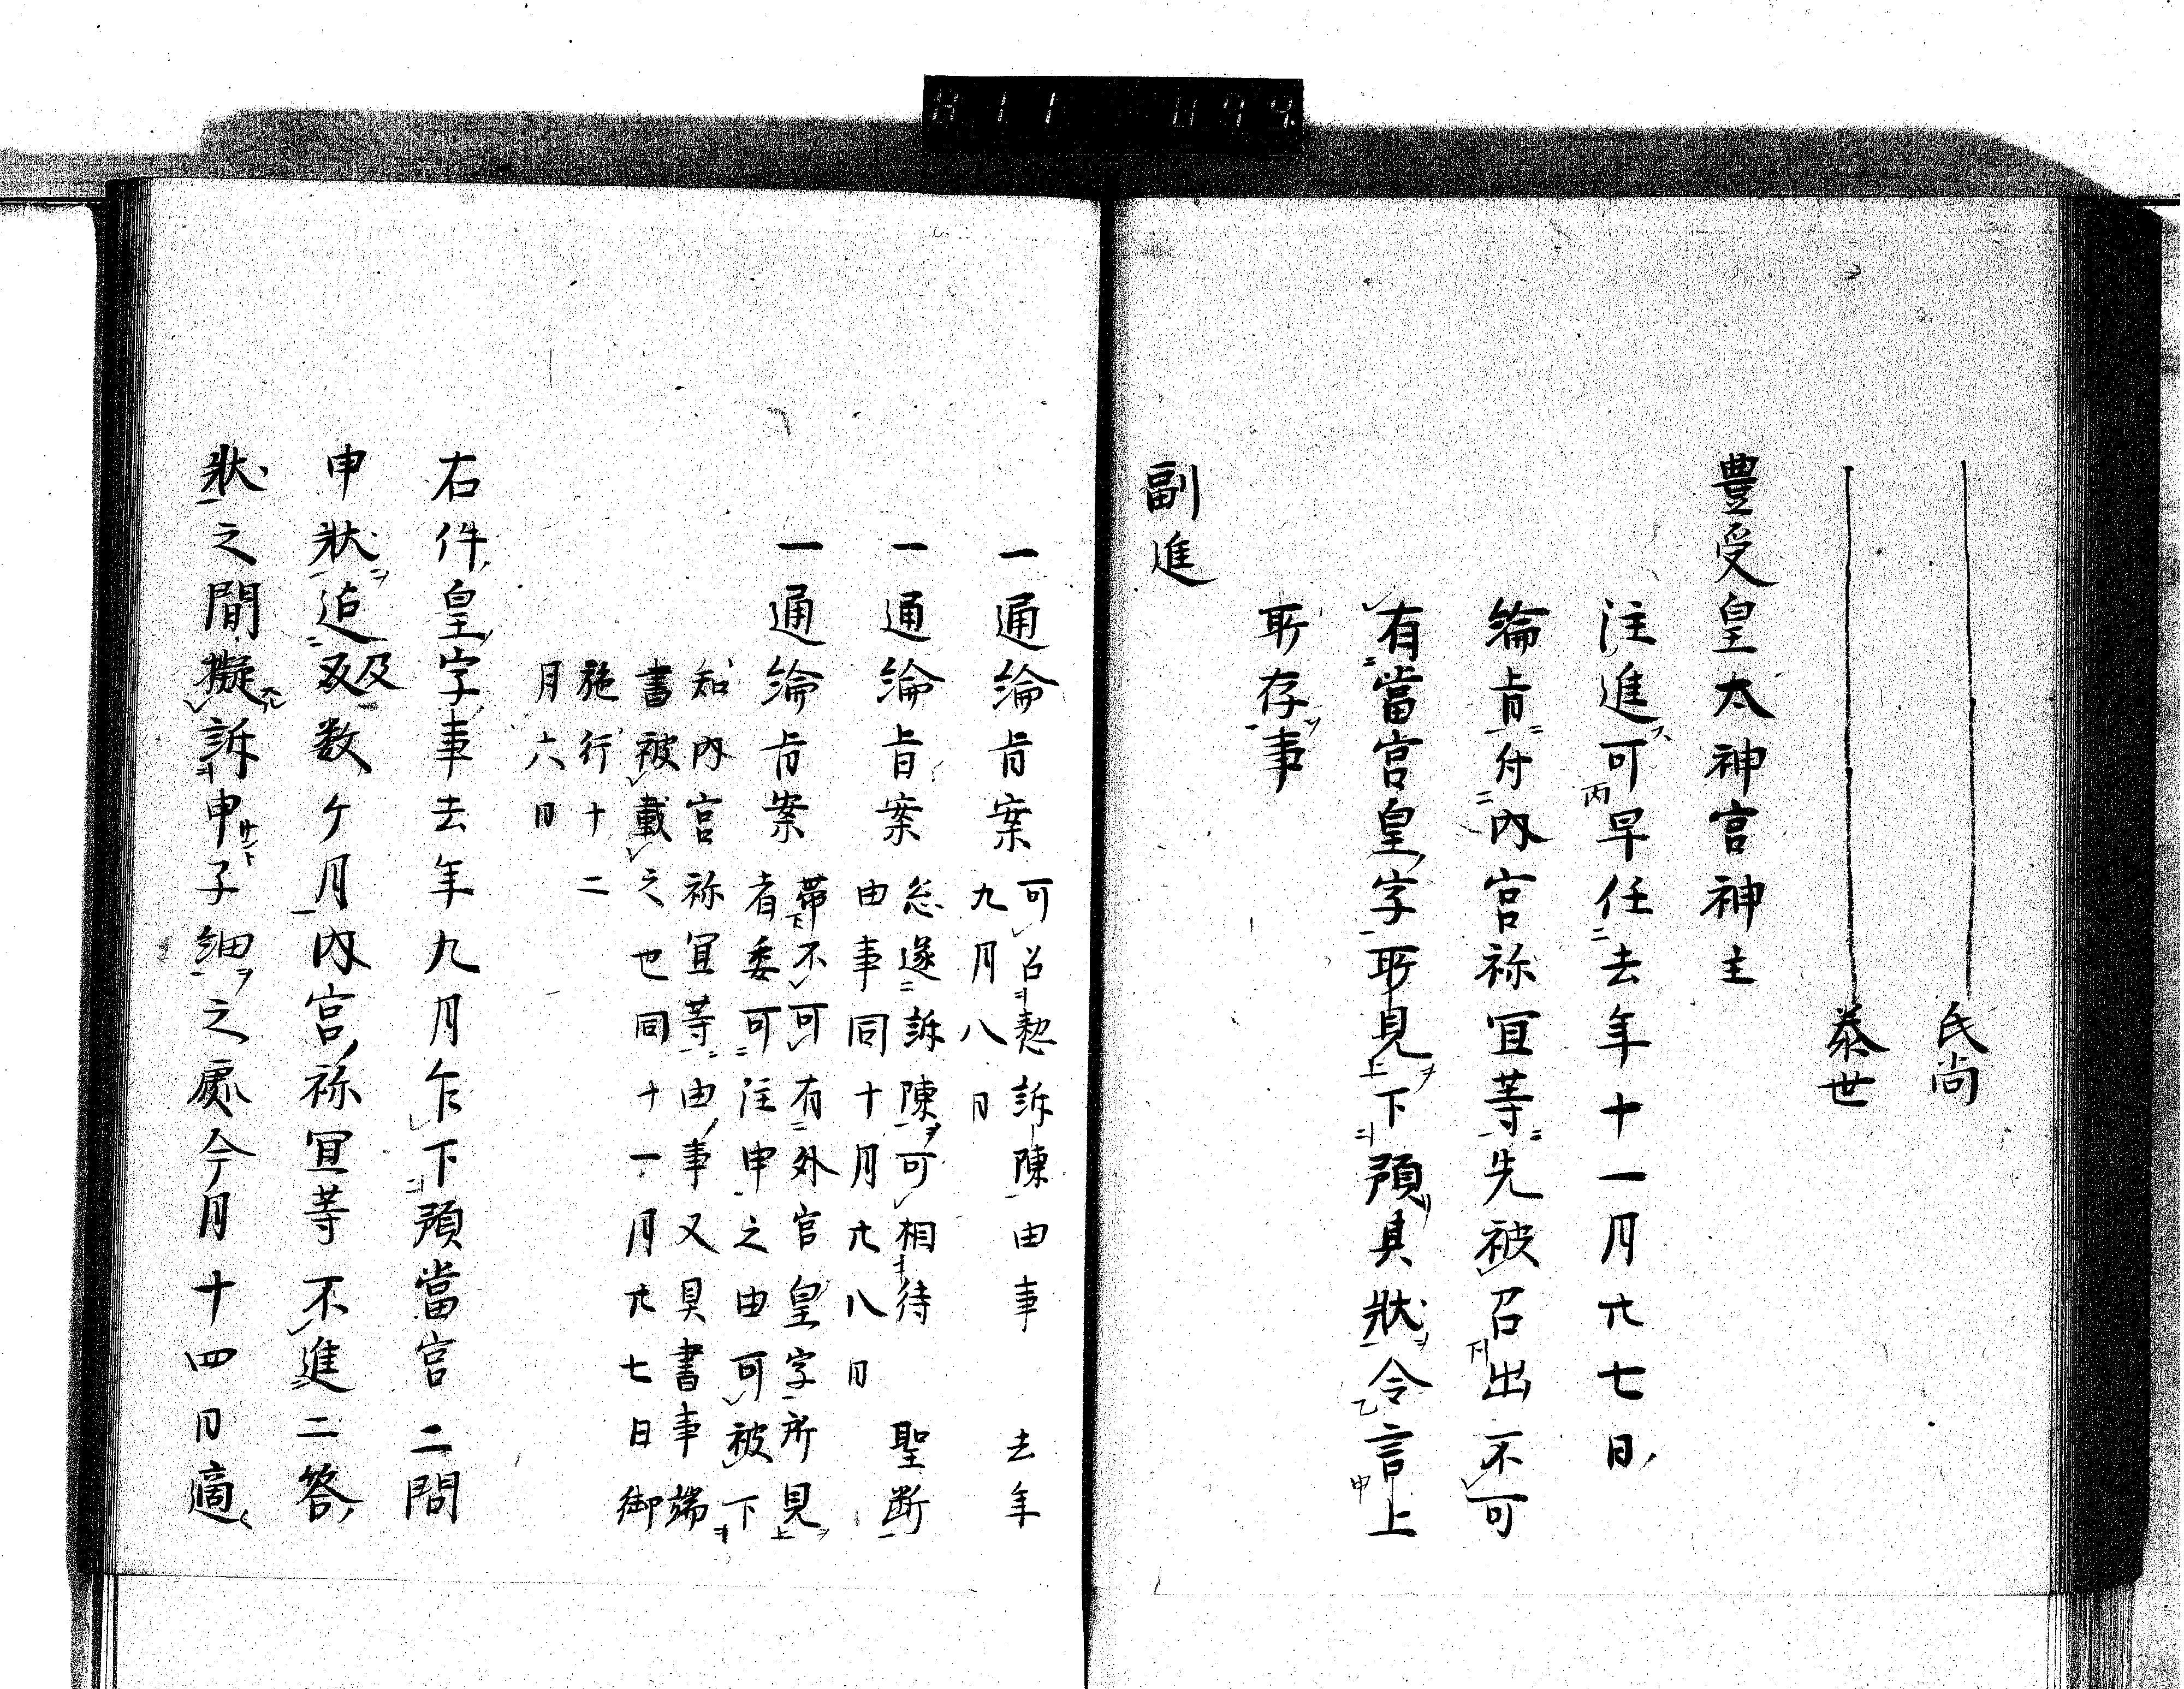 民尚
泰世
豊受皇太神宮神主
注進可早任去年十一月廿七日
綸旨付内宮祢宜等先被召出不可
有當宮皇字所見下預具状令言上
所存事
副進
一通綸旨案 可召整訴陳由事 去年
九月八日
一通綸旨案 忩遂訴陳可相待 聖断
由事同十月廿八日
一通綸旨案 帶不可有外宮皇字所見
者委可注申之由可被下
知内宮祢宜等由事又具書事端
書被載之也同十一月廿七日御
施行十二
月六日
右件皇字事去年九月乍下預當宮二問
申状迨及数ヶ月内宮祢宜等不進二答
状之間擬訴申子細之處今月十四日適